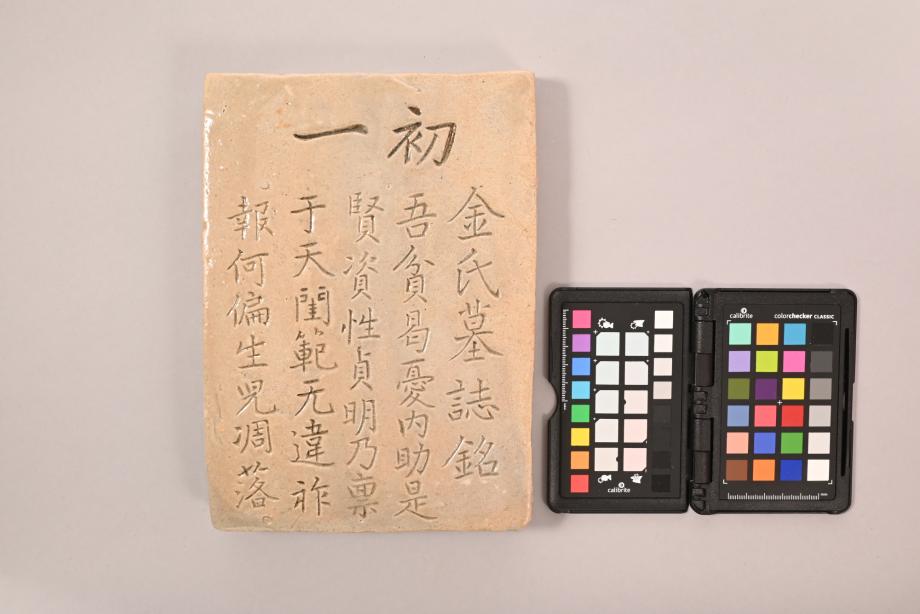 初一
金氏墓誌銘
吾貧曷憂内助是
賢資性貞明乃禀
于天閨範无違祚
報何偏生児凋落
calibrite
calibrite
colorchecker CLASSIC